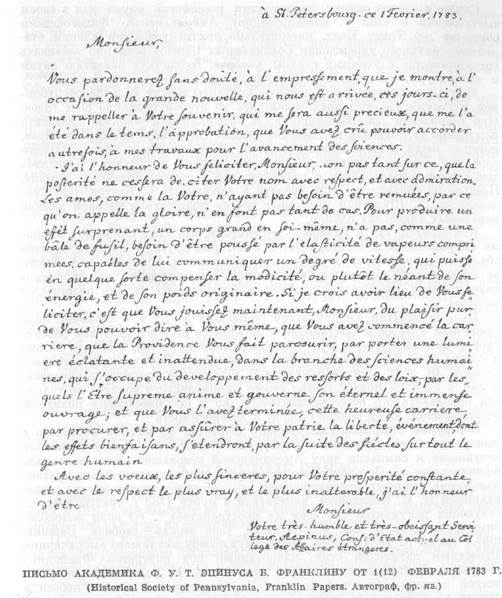 à St. Petersbourg. ce 1 Fevrier, 1783.
Monsieur,
Vous pardonnerez sans doute, à l'empressement, que je montre, à l'
occasion de la grande nouvelle, qui nous est arrivée, ces jours-ci, de
me rappeller à Votre souvenir, qui me sera aussi precieux, que me l'a
été dans le tems, l'approbation, que Vous avez crû pouvoir accorder
autrefois, à mes travaux pour l'avancement des sciences.
J'ai l'honneur de Vous feliciter, Monsieur, non pas tant sur ce, que la
posterité ne cessera de citer Votre nom avec respect, et avec admiration.
Les ames, comme la Votre, n'ayant pas besoin d'être remuées, par ce
qu'on appelle la gloire, n'en font pas tant de cas. Pour produire un
effêt surprenant, un corps grand en soi-même, n'a pas, comme une
bâle de fusil, besoin d'être poussé par l'elasticité de vapeurs compri
mees, capables de lui communiquer un degré de vitesse, qui puisse
en quelque sorte compenser la modicité, ou plutôt le néant de son
énergie, et de son poids originaire. Si je crois avoir lieu de Vous fe
liciter, c'est que Vous jouissez maintenant, Monsieur, du plaisir pur,
de Vous pouvoir dire à Vous même, que Vous avez commencé la car
riere, que la Providence Vous fait parcourir, par porter une lumi
ere éclatante et inattendue, dans la branche des sciences humai
nes, qui s'occupe du developpement des ressorts et des loix, par les
quels l'Être supreme anime et gouverne son éternel et immense
ouvrage; et que Vous l'avez terminée, cette heureuse carriere,
par procurer, et par assûrer à Votre patrie la liberté, événement, dont
les effets bienfaisans, s'etendront, par la suite des siécles, sur tout le
genre humain
Avec les voeux, les plus sinceres, pour Votre prosperité constante,
et avec le respect le plus vray, et le plus inalterable, j'ai l'honneur
d'être
Monsieur
Votre très-humble et très-obeissant Servi
teur, Aepinus, Cons: d'Etat actuel au Col
lege des Affaires étrangeres.
ПИСЬМО АКАДЕМИКА Ф. У. Т. ЭПИНУСА Б. ФРАНКЛИНУ ОТ 1(12) ФЕВРАЛЯ 1783 Г.
(Historical Society of Pennsylvania, Franklin Papers. Автограф, фр. яз.)